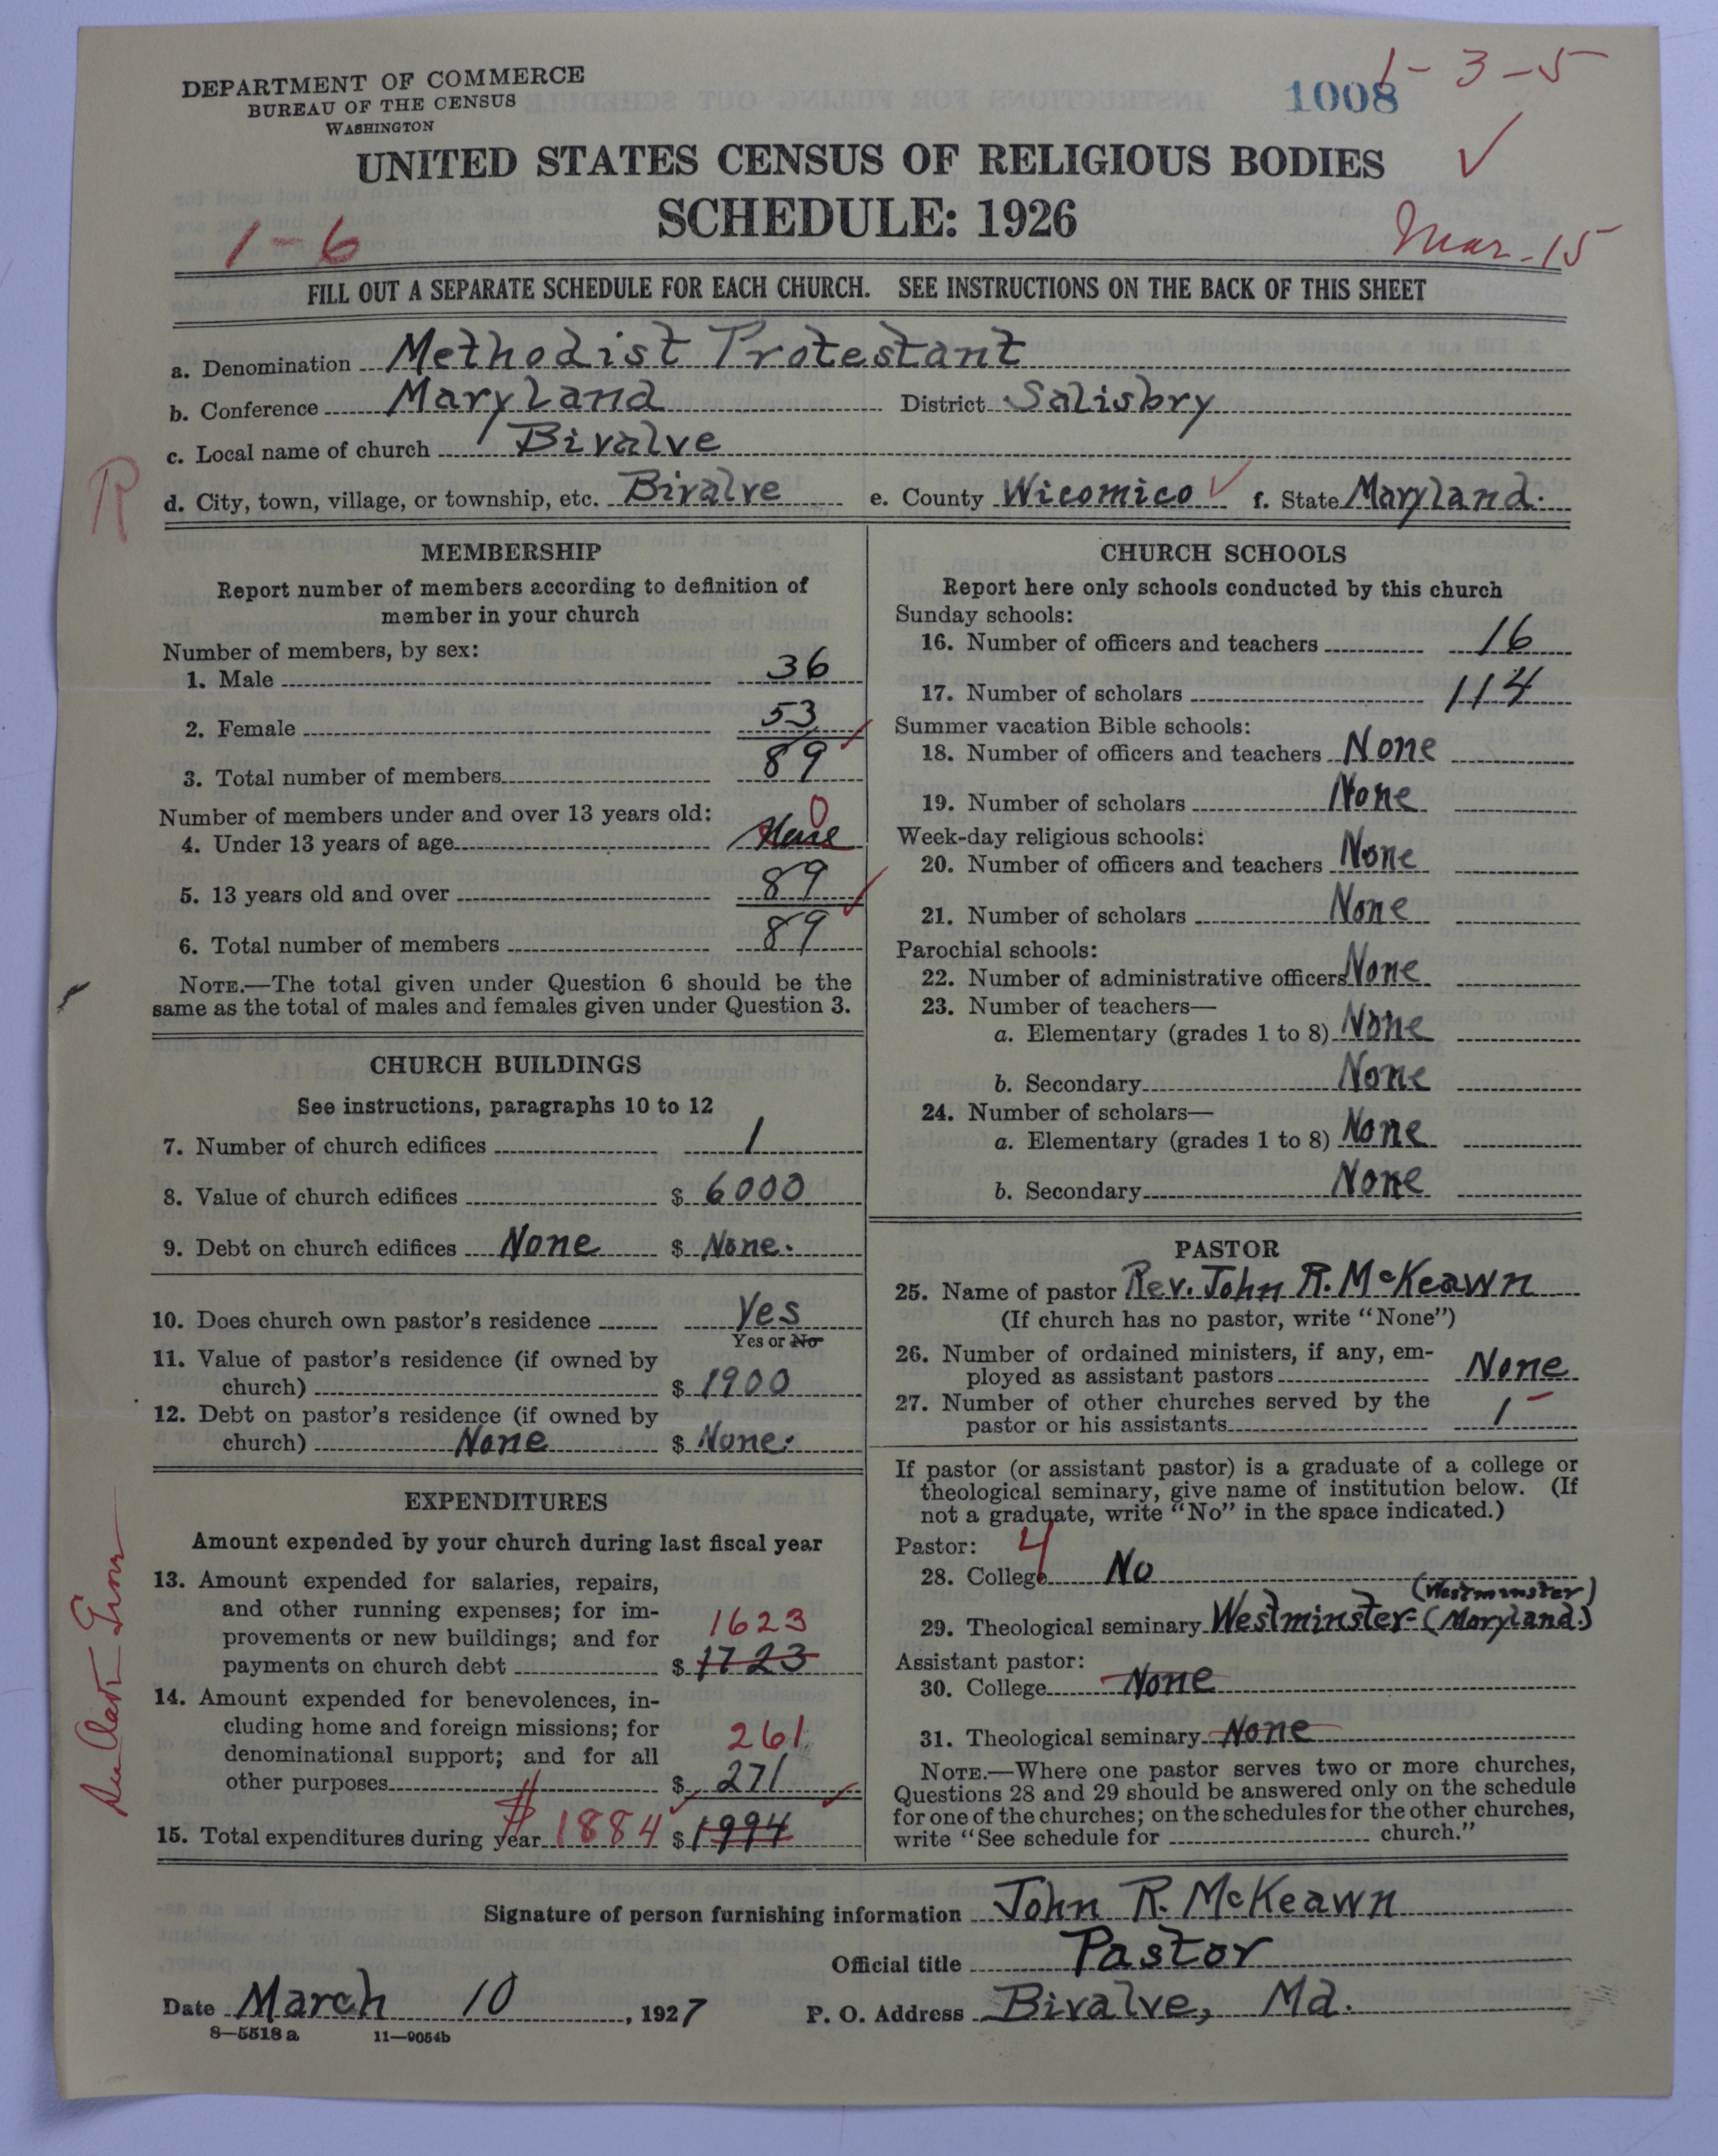 DEPARTMENT OF COMMERCE
BUREAU OF THE CENSUS
WASHINGTON
1008
1-3-5
UNITED STATES CENSUS OF RELIGIOUS BODIES
SCHEDULE: 1926
1-6
Mar-15
FILL OUT A SEPARATE SCHEDULE FOR EACH CHURCH. SEE INSTRUCTIONS ON THE BACK OF THIS SHEET
a. Denomination Methodist Protestant
b. Conference Maryland District Salisbry
c. Local name of church Bivalve
R
d. City, town, village, or township, etc. Bivalve e. County Wicomico f. State Maryland.
MEMBERSHIP
Report number of members according to definition of
member in your church
Number of members, by sex:
1. Male 36
2. Female 53
3. Total number of members 89
Number of members under and over 13 years old:
0
4. Under 13 years of age None
5. 13 years old and over 89
6. Total number of members 89
NOTE.—The total given under Question 6 should be the
same as the total of males and females given under Question 3.
CHURCH BUILDINGS
See instructions, paragraphs 10 to 12
7. Number of church edifices 1
8. Value of church edifices $ 6000
9. Debt on church edifices None $ None.
10. Does church own pastor's residence Yes
Yes or No
11. Value of pastor's residence (if owned by
church) $ 1900
12. Debt on pastor's residence (if owned by
church) None $ None.
EXPENDITURES
Amount expended by your church during last fiscal year
13. Amount expended for salaries, repairs,
and other running expenses; for im-
provements or new buildings; and for 1623
payments on church debt $ 1723
14. Amount expended for benevolences, in-
cluding home and foreign missions; for
denominational support; and for all 261
other purposes $ 271
15. Total expenditures during year $ 1884 $ 1994
CHURCH SCHOOLS
Report here only schools conducted by this church
Sunday schools:
16. Number of officers and teachers 16
17. Number of scholars 114
Summer vacation Bible schools:
18. Number of officers and teachers None
19. Number of scholars None
Week-day religious schools:
20. Number of officers and teachers None
21. Number of scholars None
Parochial schools:
22. Number of administrative officers None
23. Number of teachers—
a. Elementary (grades 1 to 8) None
b. Secondary None
24. Number of scholars—
a. Elementary (grades 1 to 8) None
b. Secondary None
PASTOR
25. Name of pastor Rev. John R. McKeawn
(If church has no pastor, write "None")
26. Number of ordained ministers, if any, em-
ployed as assistant pastors None
27. Number of other churches served by the
pastor or his assistants 1
If pastor (or assistant pastor) is a graduate of a college or
theological seminary, give name of institution below. (If
not a graduate, write "No" in the space indicated.)
Pastor: 4
28. College No
(Westminster)
29. Theological seminary Westminster-(Maryland.)
Assistant pastor:
30. College None
31. Theological seminary None
NOTE.—Where one pastor serves two or more churches,
Questions 28 and 29 should be answered only on the schedule
for one of the churches; on the schedules for the other churches,
write "See schedule for church."
Signature of person furnishing information John R. McKeawn
Official title Pastor
Date March 10, 1927 P. O. Address Bivalve, Md.
8—5518 a 11—9054b